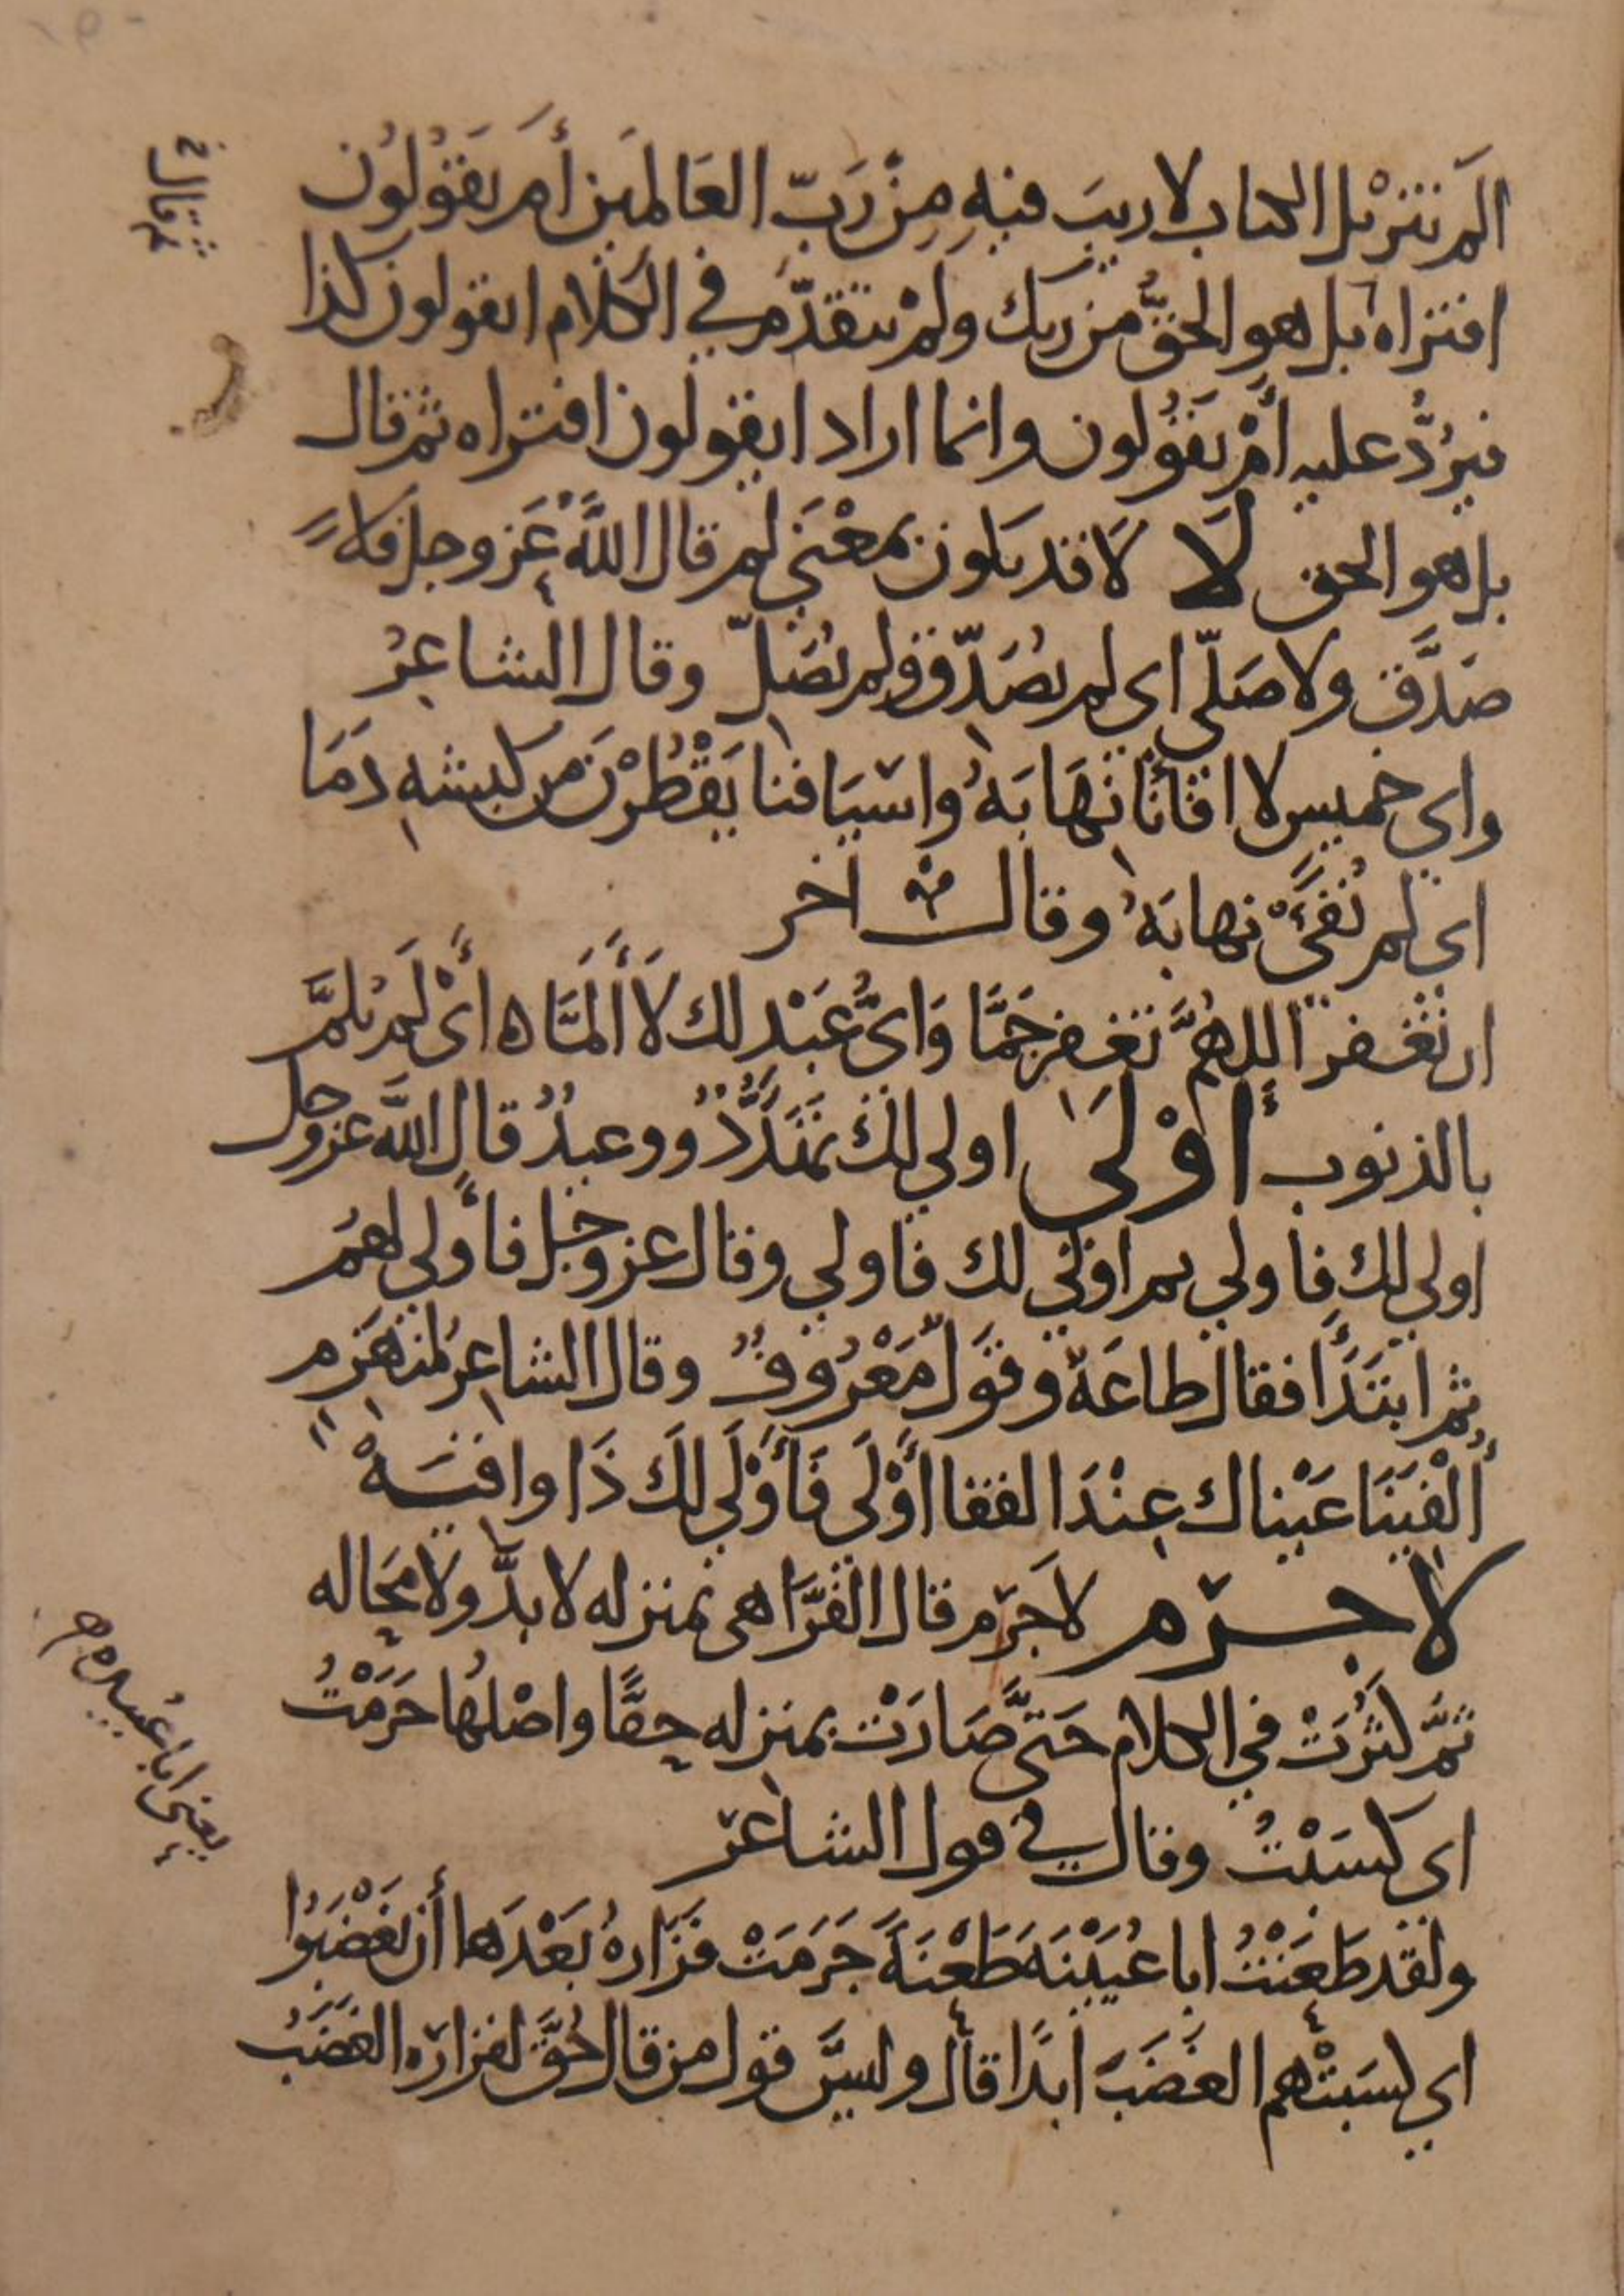 الم تنزيل الكتاب لا ريبَ فيهِ مِنْ رَبّ العَالمَين أَم يَقُولُون
افتراه بل هو الحقُّ من ربك ولمْ يتقدّم في الكلام ايقولون كذا
فيرُدُّ عليه أمْ يَقُولون وانما اراد ايقولون افتراه ثم قال
بل هو الحق لَا لَا قد يكون بمعْنَى لم قال اللَّهُ عَز وجل فلا
صَدَّق ولا صَلّى اى لم يُصَدّق ولم يُصَلّ وقال الشاعِرُ
واي خميس لا افأنا نَهَابَهُ واسْيَافنا يَقْطُرْنَ من كبشهِ دَمَا
اي لم نُفئْ نهابَهُ وقال اخر
ان تغفر اللهُمَّ تغفر جَمَّا وَاىُّ عَبْدٍ لك لَا أَلَمَّا ه أىْ لَم يُلمَّ
بالذنوب أَوْلَى اولي لك تهَدُّدٌ ووعيدٌ قال اللَّه عز وجل
اولي لك فاولي ثم اولى لك فاولي وقال عز وجل فأولي لهُم
ثم ابتَدَأ فقال طاعَة وقَولٌ مَعْرُوفٌ وقال الشاعِرُ لمنهَزِمٍ
أُلْفِيَتَا عَيْناك عِنْدَ القفا أَوْلَى فَأَوْلَى لَكَ ذَا وافيَهْ
لا جرم لا جَرَم قال الفَرَّا هى بمنزله لا بدَّ ولا محَاله
ثمَّ كثُرَتْ في الكلام حَتىَّ صَارَتْ بمنزله حقًّا واصْلُها جَرَمْتُ
اى كسَبْتُ وقال في قول الشاعر
ولقد طَعَنْتُ ابا عُيَيْنَهَ طَعْنَةً جَرَمَتْ فزَارهُ بَعْدَها أن يَغْضَبُوا
اي كسَبتْهم الغضَبَ ابدًا قال وليسَ قول من قال حُقَّ لفزاره الغضَبُ
يعنى ابا عُبيده